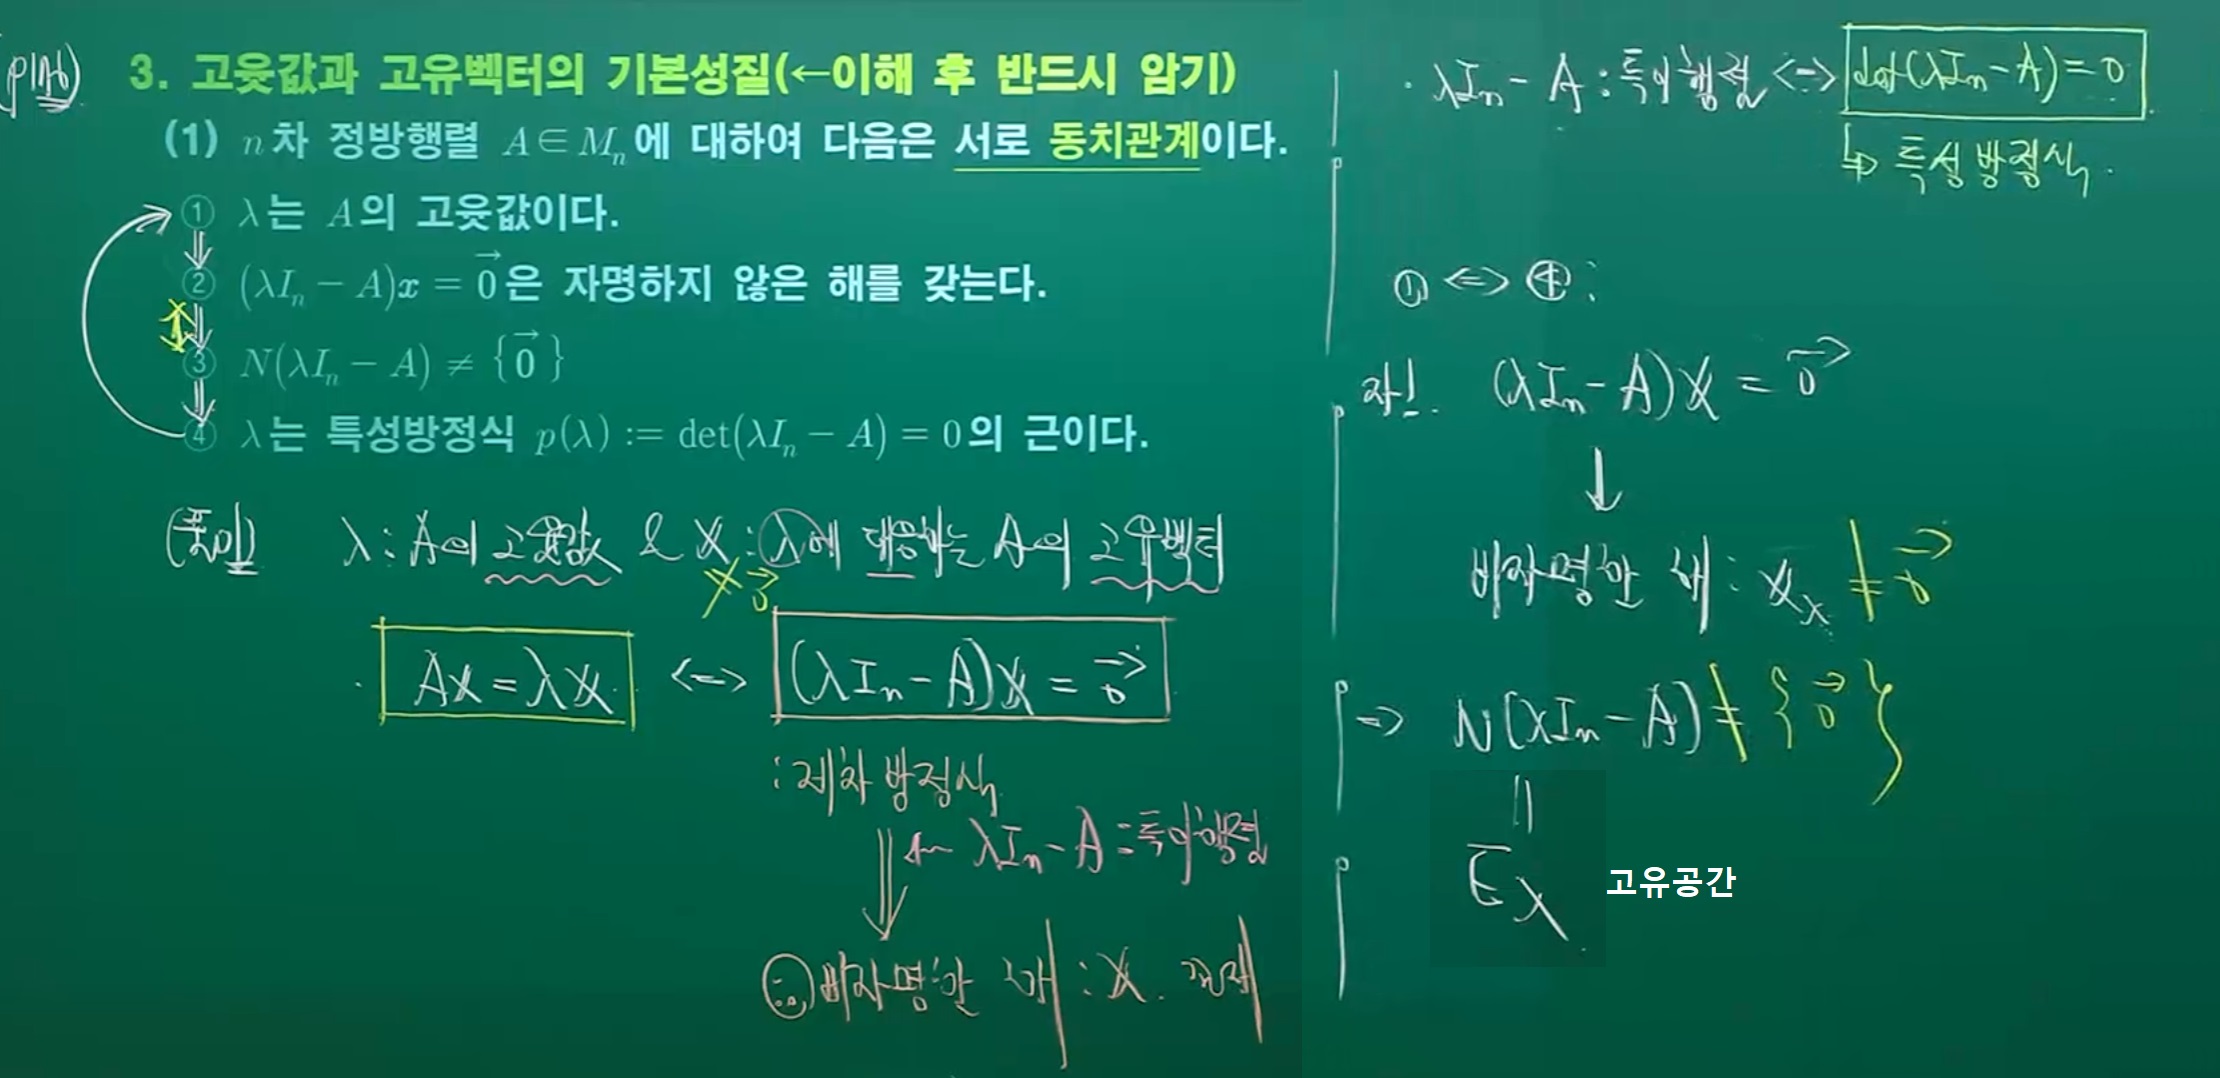 3. 고윳값과 고유벡터의 기본성질(←이해 후 반드시 암기)
(1) n차 정방행렬 A∈Mₙ에 대하여 다음은 서로 동치관계이다.
① λ는 A의 고윳값이다.
② (λIₙ − A)x = 0⃗은 자명하지 않은 해를 갖는다.
③ N(λIₙ − A) ≠ {0⃗}
④ λ는 특성방정식 p(λ) := det(λIₙ − A) = 0의 근이다.
(풀이) λ : A의 고윳값 & x : λ에 대응하는 A의 고유벡터
≠ 0⃗
· Ax = λx <=> (λIₙ − A)x = 0⃗
: 제차 방정식
← λIₙ − A : 특이행렬
비자명한 해 : x. 존재
· λIₙ − A : 특이행렬 <=> det(λIₙ − A) = 0
↳ 특성방정식.
① <=> ④ :
(λIₙ − A)x = 0⃗
↓
비자명한 해 : x_λ ≠ 0⃗
=> N(λIₙ − A) ≠ {0⃗}
||
E_λ 고유공간